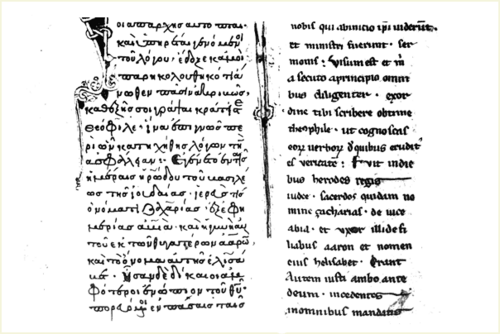 οι απαρχης αυτοπται
και υπηρεται γενομενοι
του λογου· εδοξε καμοι
παρηκολουθηκοτι α
νωθεν πασιν ακριβως
καθεξης σοι γραψαι κρατιστε
θεοφιλε· ινα επιγνως πε
ρι ων κατηχηθης λογων την
ασφαλειαν· Εγενετο εν ταις
ημεραις ηρωδου του βασιλε
ως της ιουδαιας· ιερευς τις
ονοματι ζαχαριας· εξ εφη
μεριας αβια· και η γυνη αυ
του εκ των θυγατερων ααρω
και το ονομα αυτης ελισα
βετ· Ησαν δε δικαιοι αμ
φοτεροι ενωπιον του θυ·
πορευομενοι εν πασαις ταις
nobis qui abinicio ipi uiderunt
et ministri fuerunt ser
monis: Uisum est et m
asecuto aprincipio omni
bus diligenter· exor
dine tibi scribere obtime
theophile· ut cognoscas
eorum uerborum dequibus eruditus
es ueritatem: Fuit indie
bus herodes regis
iudee· sacerdos quidam no
mine zacharias· de uice
abia· et uxor illi de fi
liabus aaron et nomen
eius helisabet· Erant
Autem iusti ambo ante
deum· incedentes
inomnibus mandatis